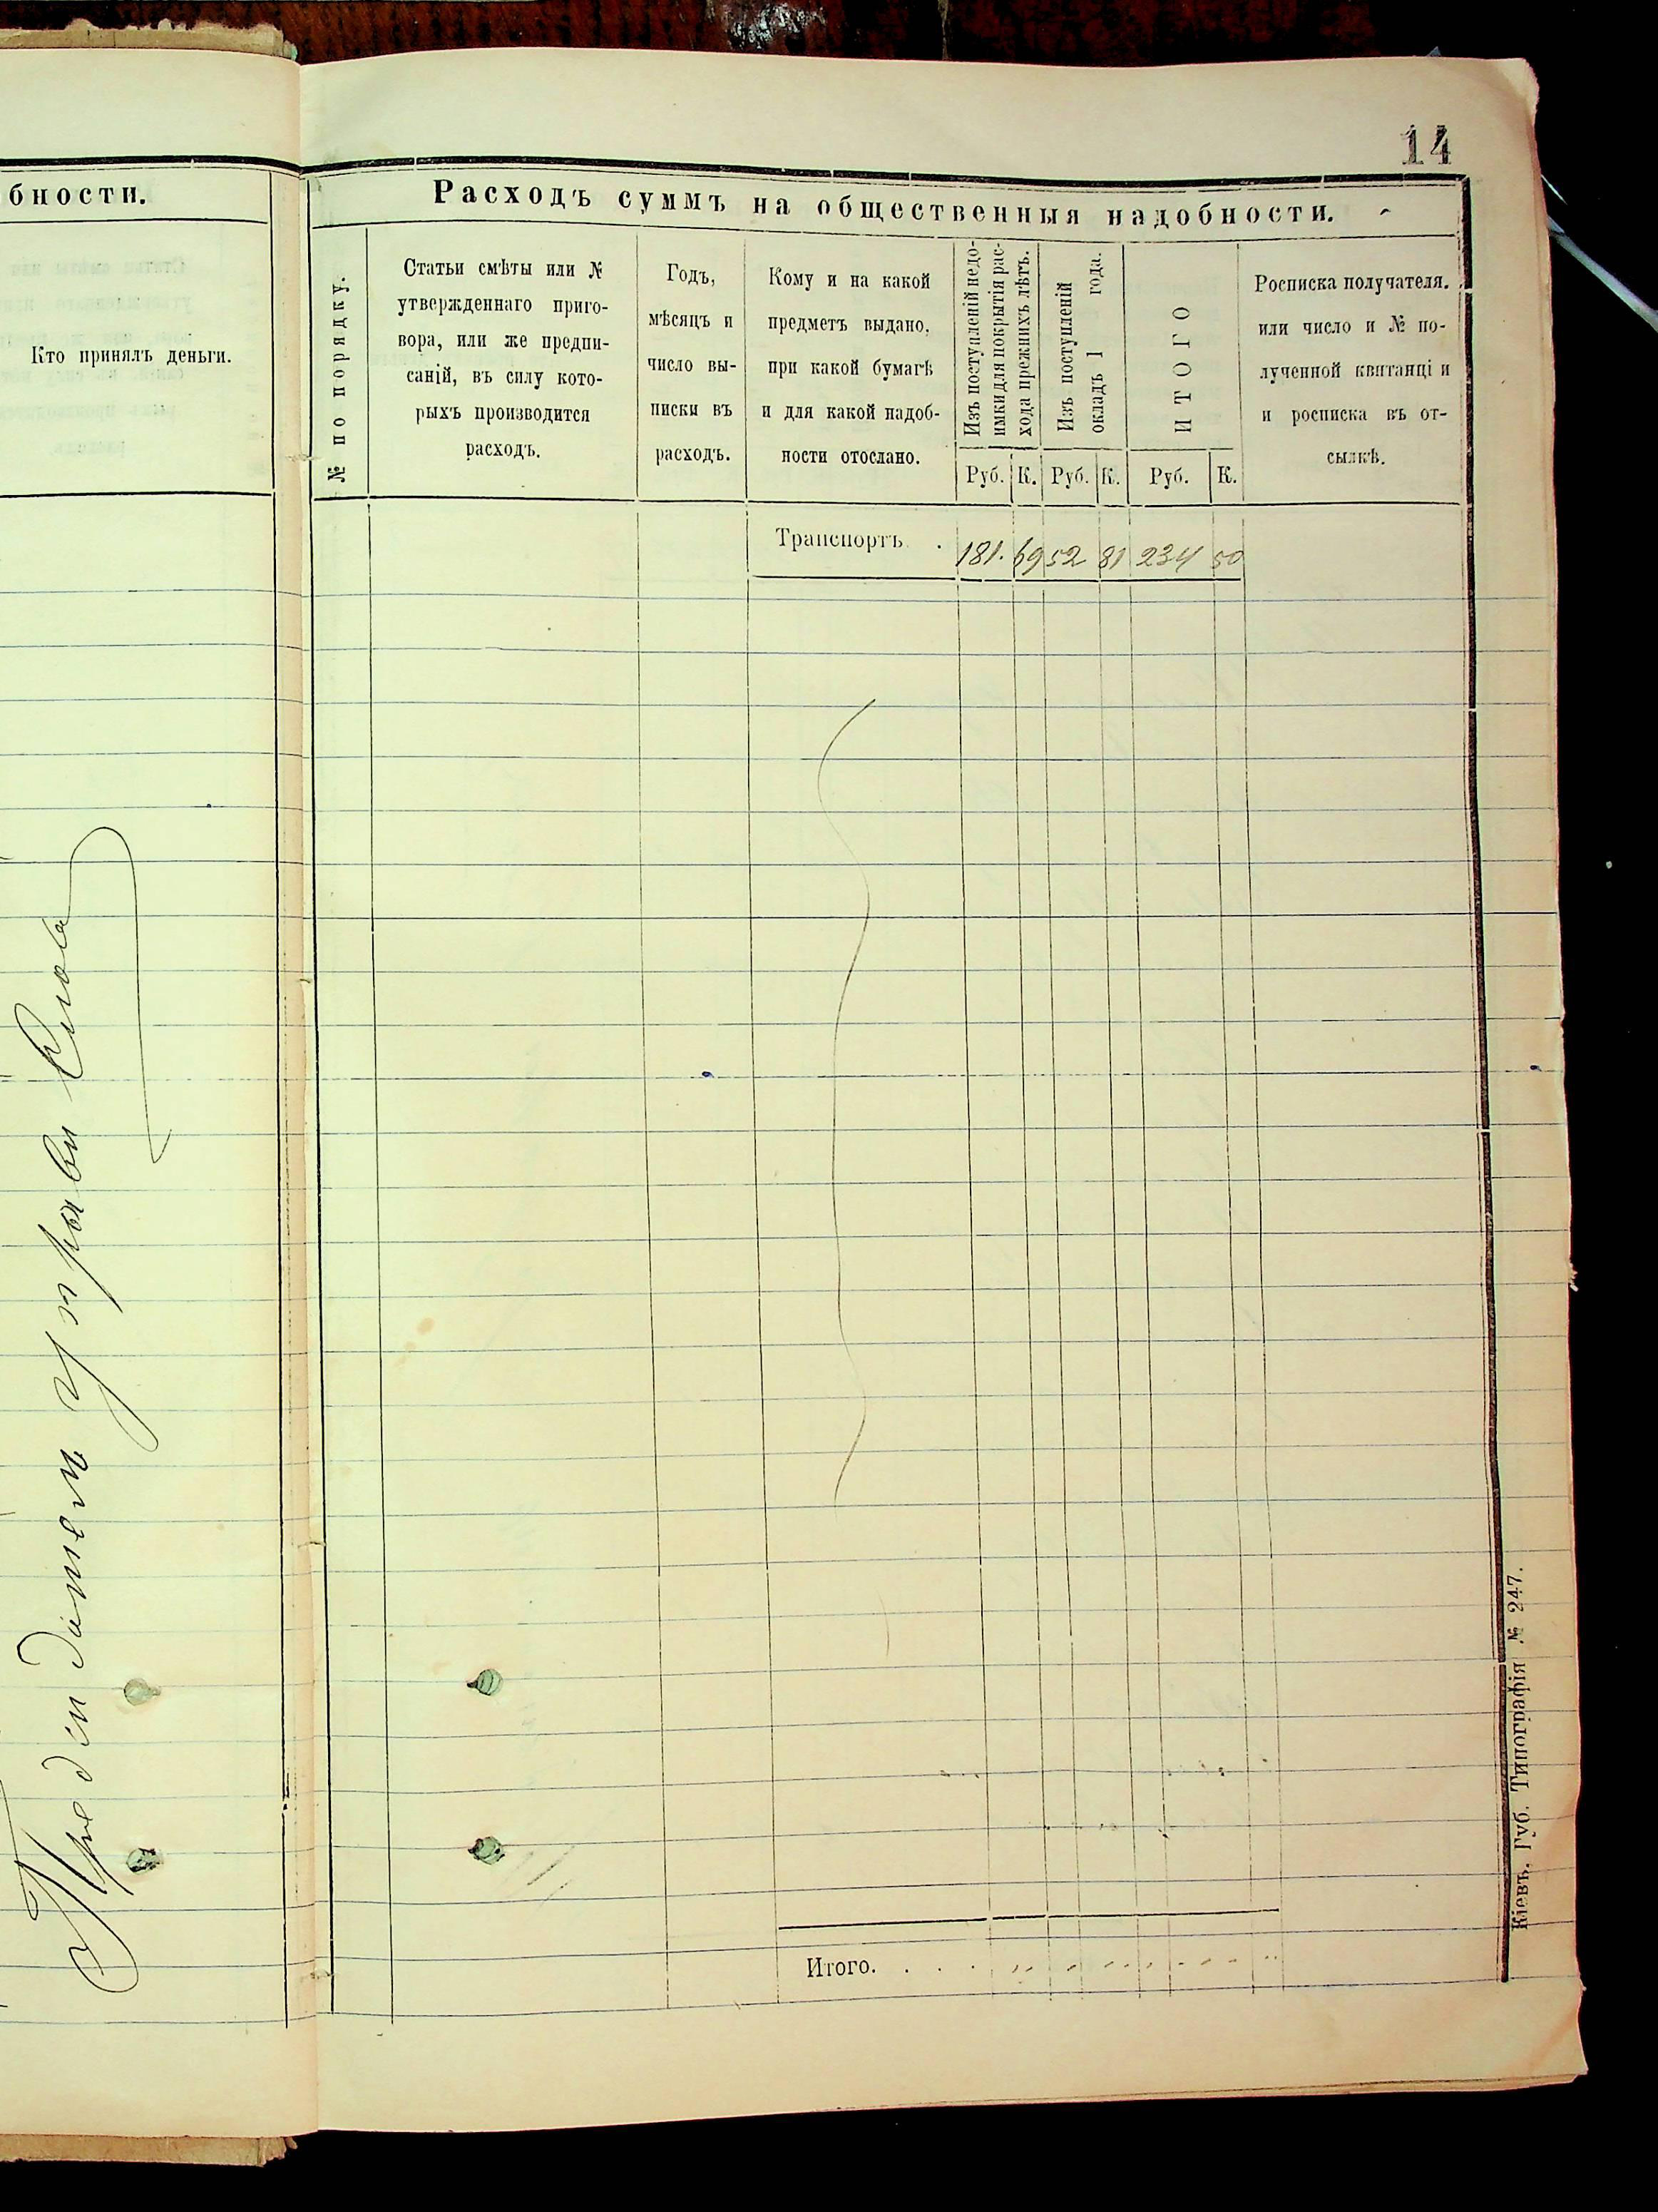 14
бности.
Кто принялъ деньги.
Предидатель управи
Расходъ суммъ на общественныя надобности.
№ по порядку.
Статьи смѣты или №
утвержденнаго приго-
вора, или же предпи-
саній, въ силу кото-
рыхъ производится
расходъ.
Годъ,
мѣсяцъ и
число вы-
писки въ
расходъ.
Кому и на какой
предметъ выдано,
при какой бумагѣ
и для какой надоб-
ности отослано.
Изъ поступленій недо-
имки для покрытія рас-
хода прежнихъ лѣтъ.
Изъ поступленій
окладъ 1 года.
ИТОГО
Руб. К. Руб. К. Руб. К.
Росписка получателя.
или число и № по-
лученной квитанці и
и росписка въ от-
сылкѣ.
Транспортъ. 181. 69 52 81 234 50
Итого. . . .
Кіевъ. Губ. Типографія № 247.